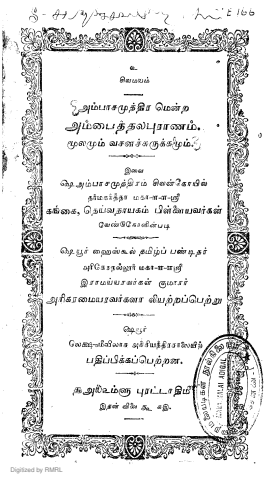 E 166
உ
சிவமயம்
அம்பாசமுத்திர மென்ற
அம்பைத்தலபுராணம்.
மூலமும் வசனச்சுருக்கமும்.
இவை
ஷெ அம்பாசமுத்திரம் சிவன்கோயில்
தர்மகர்த்தா மகா-ள-ள-ஸ்ரீ
கங்கை, தெய்வநாயகம் பிள்ளையவர்கள்
வேண்டுகோளின்படி
ஷெயூர் ஹைஸ்கூல் தமிழ்ப் பண்டிதர்
மகா-ள-ள-ஸ்ரீ
இராமய்யரவர்கள் குமாரர்
அரிகரமையரவர்களா லியற்றப்பெற்று
ஷெயூர்
அச்சியந்திரசாலையிற்
பதிப்பிக்கப்பெற்றன.
புரட்டாதிமீ
இதன் விலை
Digitized by RMRL